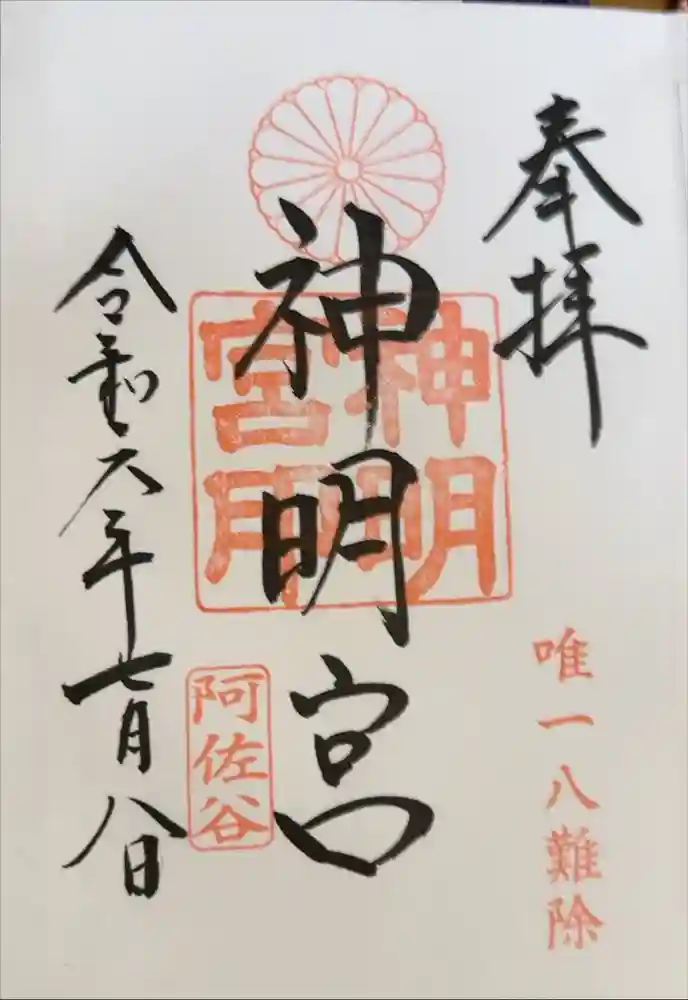 奉拝
唯一八難除
神明宮
神明宮用
阿佐谷
令和六年七月八日